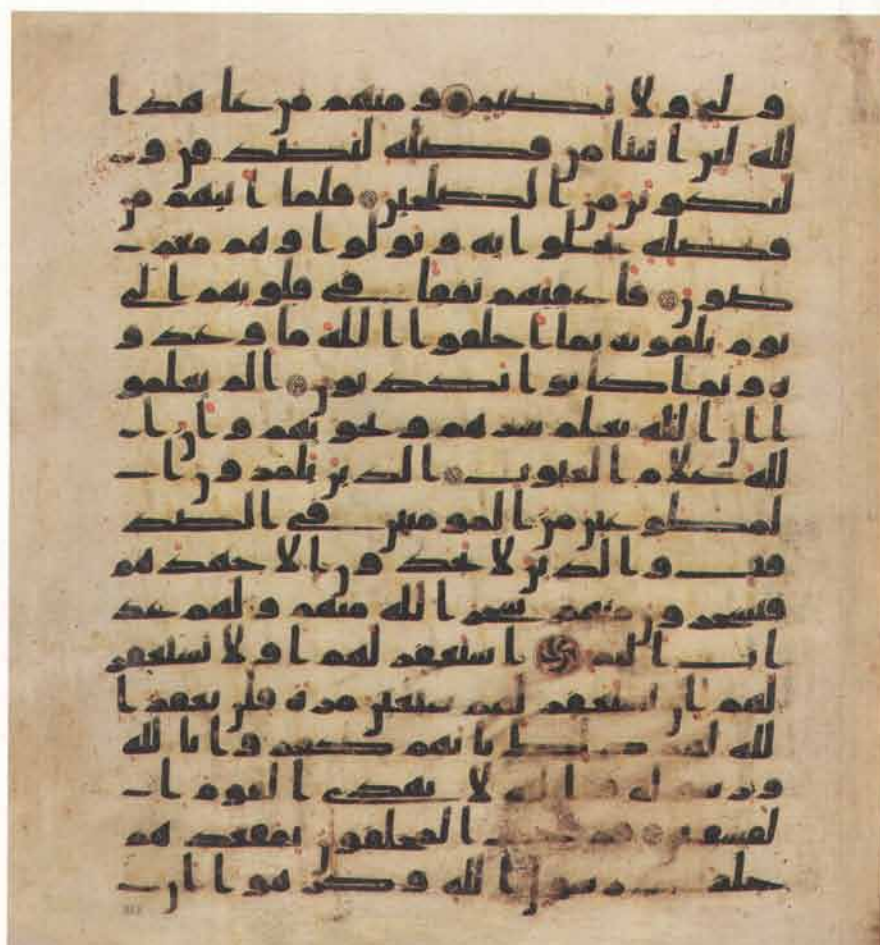 ولي ولا نصير ومنهم من عاهد ا
لله لئن اتينا من فضله لنصدقن و
لنكونن من الصلحين فلما اتيهم من
فضله بخلوا به وتولوا وهم معر
ضون فاعقبهم نفقا في قلوبهم الى
يوم يلقونه بما اخلفوا الله ما وعدو
ه وبما كانوا يكذبون الم يعلمو
ا ان الله يعلم سرهم ونجويهم وان ا
لله علام الغيوب الذين يلمزون ا
لمطوعين من المومنين في الصد
قت والذين لا يجدون الا جهدهم
فيسخرون منهم سخر الله منهم ولهم عذ
اب اليم استغفر لهم او لا تستغفر
لهم ان تستغفر لهم سبعين مرة فلن يغفر ا
لله لهم ذلك بانهم كفروا بالله
ورسوله والله لا يهدى القوم ا
لفسقين فرح المخلفون بمقعدهم
خلف رسول الله وكرهوا ان